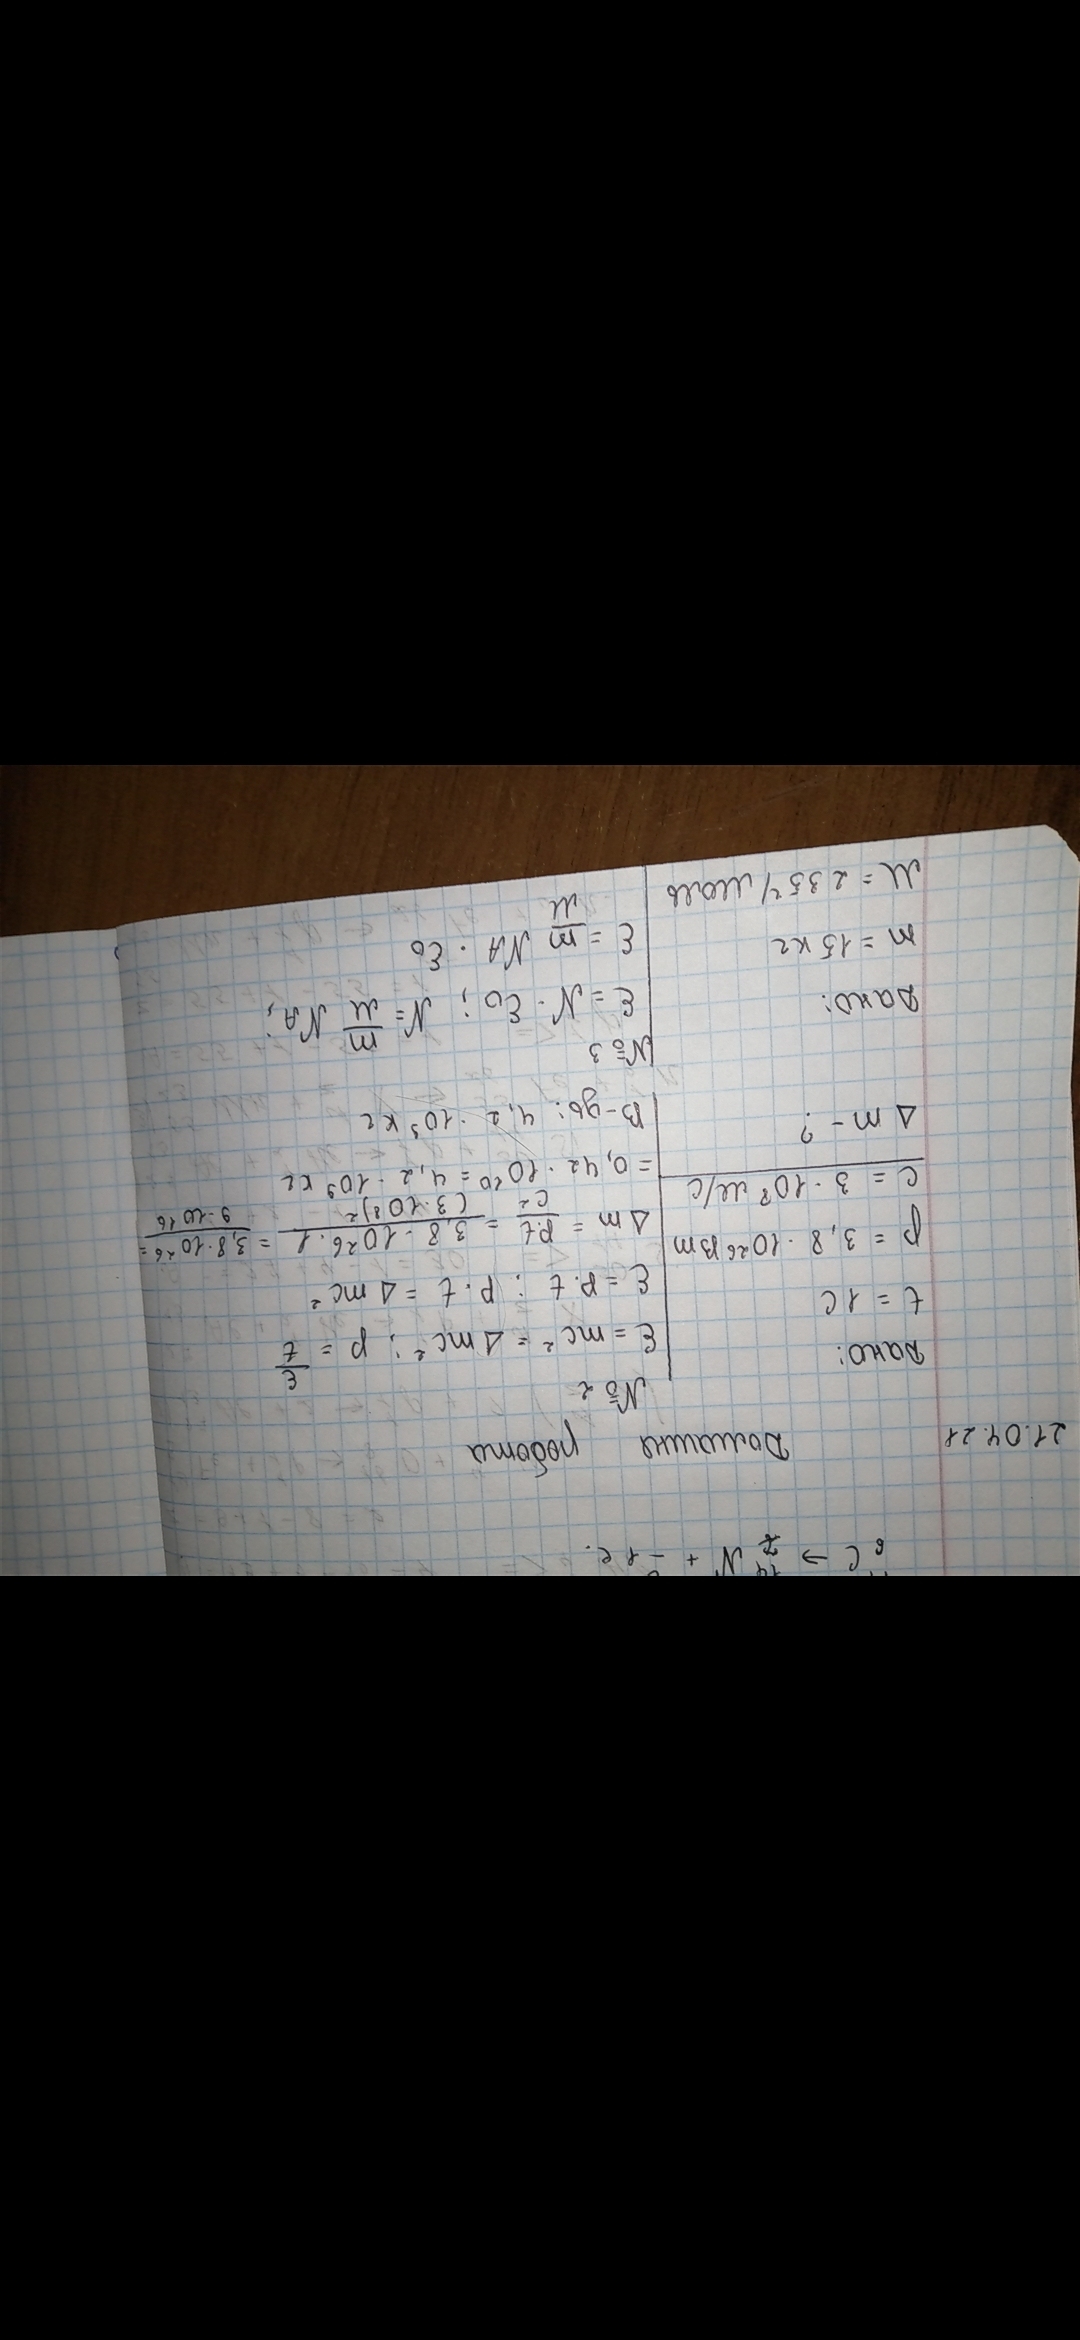 ₆C → ¹⁴₇N + ₋₁e.
21.04.21 Домашня робота
№ 2
Дано:
t = 1 с
p = 3,8 · 10²⁶ Вт
c = 3 · 10⁸ м/с
Δm - ?
E = mc² = Δmc²; p = E/t
E = p·t; p·t = Δmc²
Δm = p·t/c² = 3,8 · 10²⁶ · 1/(3·10⁸)² = 3,8·10²⁶/9·10¹⁶ =
= 0,42 · 10¹⁰ = 4,2 · 10⁹ кг
В-дь: 4,2 · 10⁹ кг
№ 3
Дано:
m = 15 кг
M = 235 г/моль
E = N · E₀; N = m/M Nᴀ;
E = m/M Nᴀ · E₀